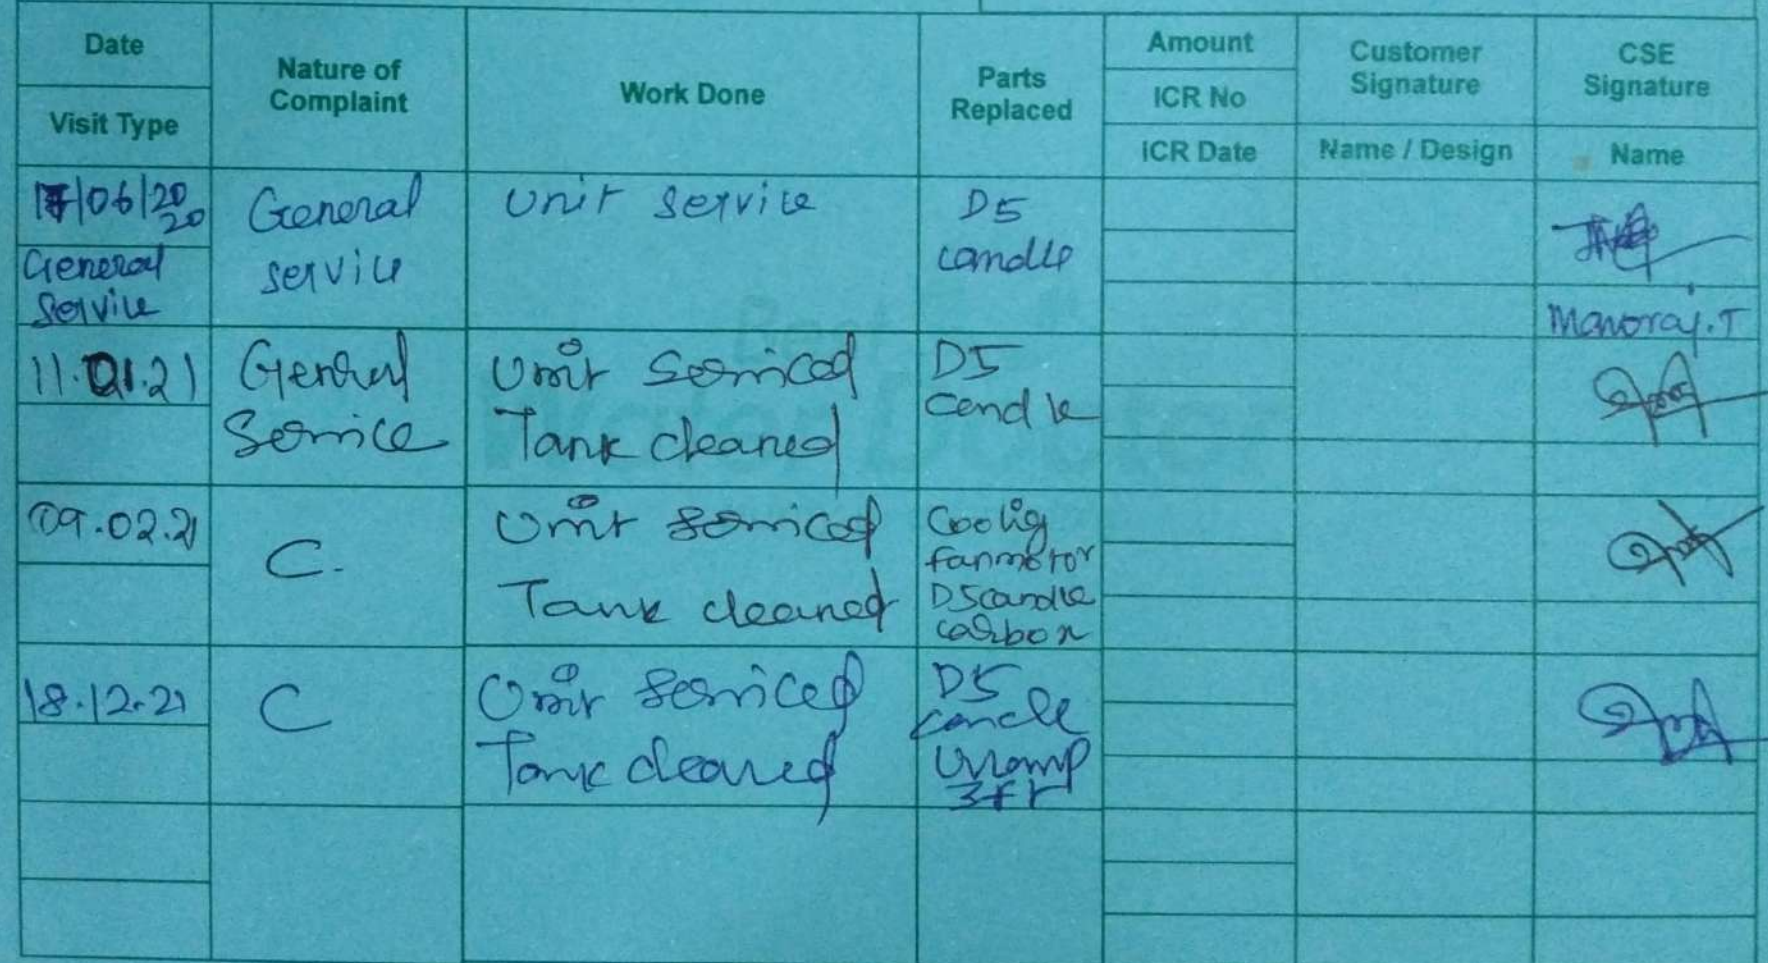 Date
Visit Type
Nature of
Complaint
Work Done
Parts
Replaced
Amount
ICR No
ICR Date
Customer
Signature
Name / Design
CSE
Signature
Name
17/06/20
20
General
Service
General
service
Unit service
D5
candle
Manoraj.T
11.01.21
General
Service
Unit Serviced
Tank cleaned
D5
Candle
09.02.21
C.
Unit serviced
Tank cleaned
Coolig
fanmotor
D5candle
carbon
18.12.21
C
Unit serviced
Tank cleaned
D5
candle
3ft